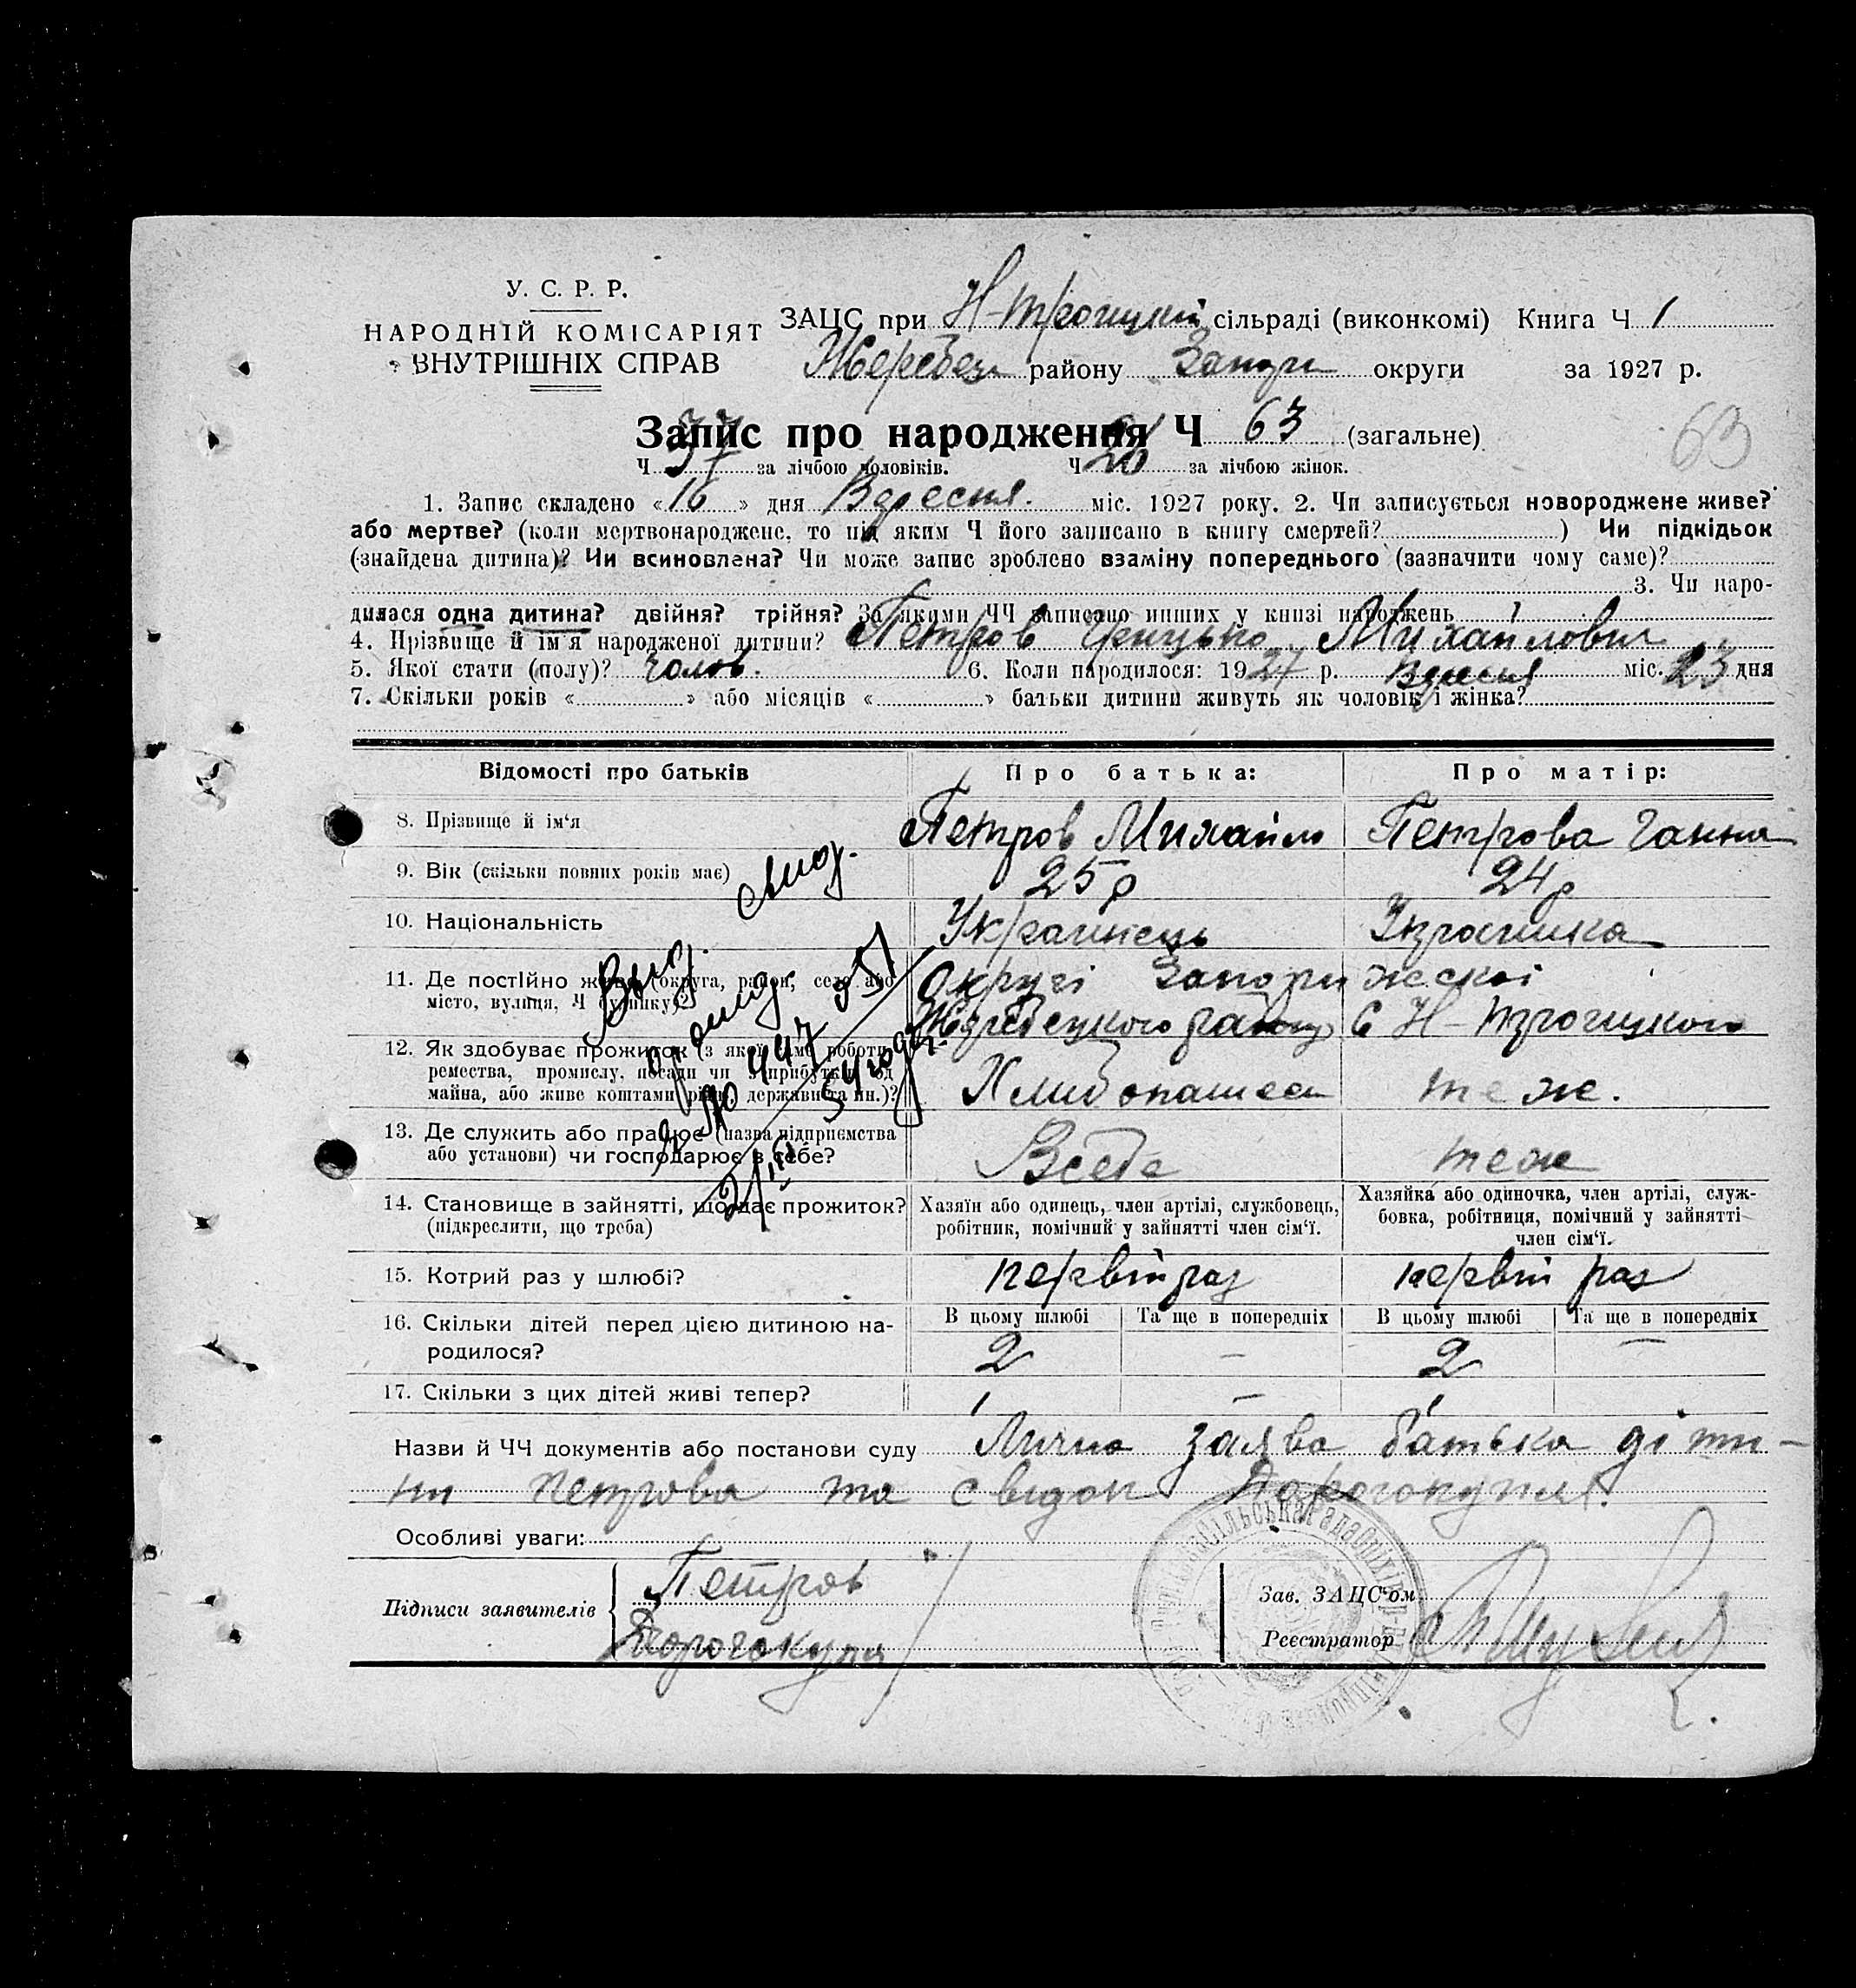 У. С. Р. Р.
НАРОДНІЙ КОМІСАРІЯТ
ВНУТРІШНІХ СПРАВ
ЗАЦС при Н-Троицкій сільраді (виконкомі) Книга Ч 1
Жеребец району Запори округи за 1927 р.
Запис про народження Ч 63 (загальне)
63
Ч 37 за лічбою чоловіків. Ч 26 за лічбою жінок.
1. Запис складено «16» дня Вересня міс. 1927 року. 2. Чи записується новороджене живе?
або мертве? (коли мертвонароджене, то під яким Ч його записано в книгу смертей? ) Чи підкідьок
(знайдена дитина)? Чи всиновлена? Чи може запис зроблено взаміну попереднього (зазначити чому саме)?
3. Чи наро-
дилася одна дитина? двійня? трійня? За якими ЧЧ записано инших у книзі народжень 1
4. Прізвище й ім'я народженої дитини? Петров Грицько Михайлович
5. Якої стати (полу)? чолов. 6. Коли народилося: 1927 р. Вересня міс. дня
7. Скільки років « » або місяців « » батьки дитини живуть як чоловік і жінка?
Відомості про батьків Про батька: Про матір:
8. Прізвище й ім'я Петров Михайло Петрова Ганна
9. Вік (скільки повних років має) 25 р 24 р
10. Національність Украинець Украинка
11. Де постійно живе (округа, район, село або Округі Запорижскоі
місто, вулиця, Ч будинку)? Жеребецкого району С Н-Троицкого
12. Як здобуває прожиток (з якої саме роботи,
ремества, промислу, посади чи з прибутків од
майна, або живе коштами рідні, держави та ин.)? Хлибопашец теж.
13. Де служить або працює (назва підприємства
або установи) чи господарює в себе? Всебе теж
14. Становище в зайнятті, що дає прожиток?
(підкреслити, що треба)
Хазяїн або одинець, член артілі, службовець,
робітник, помічний у зайнятті член сім'ї.
Хазяйка або одиночка, член артілі, служ-
бовка, робітниця, помічний у зайнятті
член сім'ї.
15. Котрий раз у шлюбі? первій раз первій раз
16. Скільки дітей перед цією дитиною на-
родилося?
В цьому шлюбі Та ще в попередніх В цьому шлюбі Та ще в попередніх
2 — 2 —
17. Скільки з цих дітей живі тепер? 1 — 1
Назви й ЧЧ документів або постанови суду Лична заява батька діти-
ни Петрова та свідок Дорогокупля.
Особливі уваги:
Підписи заявителів Петров
Дорогокупля
Зав. ЗАЦС'ом
Реєстратор